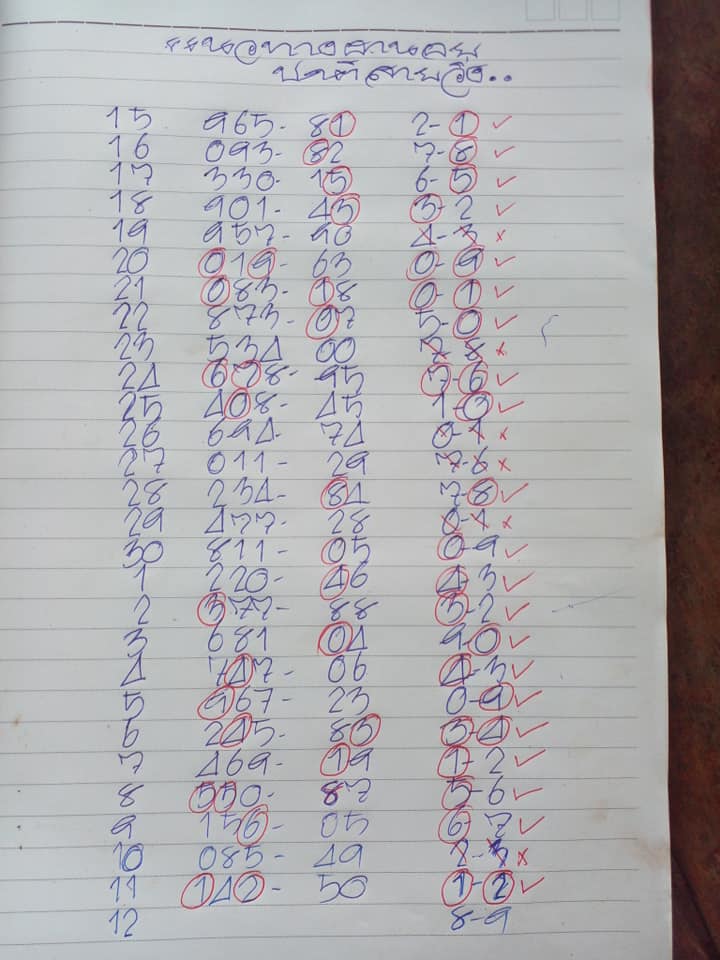 **แนวทางฮานอย
ปกติสายวิ่ง..
15 965- 81 2-1 ✓
16 093- 82 7-8 ✓
17 330- 15 6-5 ✓
18 901- 43 3-2 ✓
19 957- 90 4-3 ×
20 019- 63 0-9 ✓
21 083- 18 0-1 ✓
22 873- 07 5-0 ✓
23 534 00 7-8 ×
24 678- 95 7-6 ✓
25 408- 45 1-0 ✓
26 694- 74 0-1 ×
27 011- 29 7-6 ×
28 234- 84 7-8 ✓
29 477- 28 0-1 ×
30 811- 05 0-9 ✓
1 220- 46 4-3 ✓
2 377- 88 3-2 ✓
3 681 04 9-0 ✓
4 747- 06 4-3 ✓
5 967- 23 0-9 ✓
6 245- 83 3-4 ✓
7 469- 19 1-2 ✓
8 550- 87 5-6 ✓
9 156- 05 6 7 ✓
10 085- 49 2-3 ×
11 142- 50 1-2 ✓
12 8-9